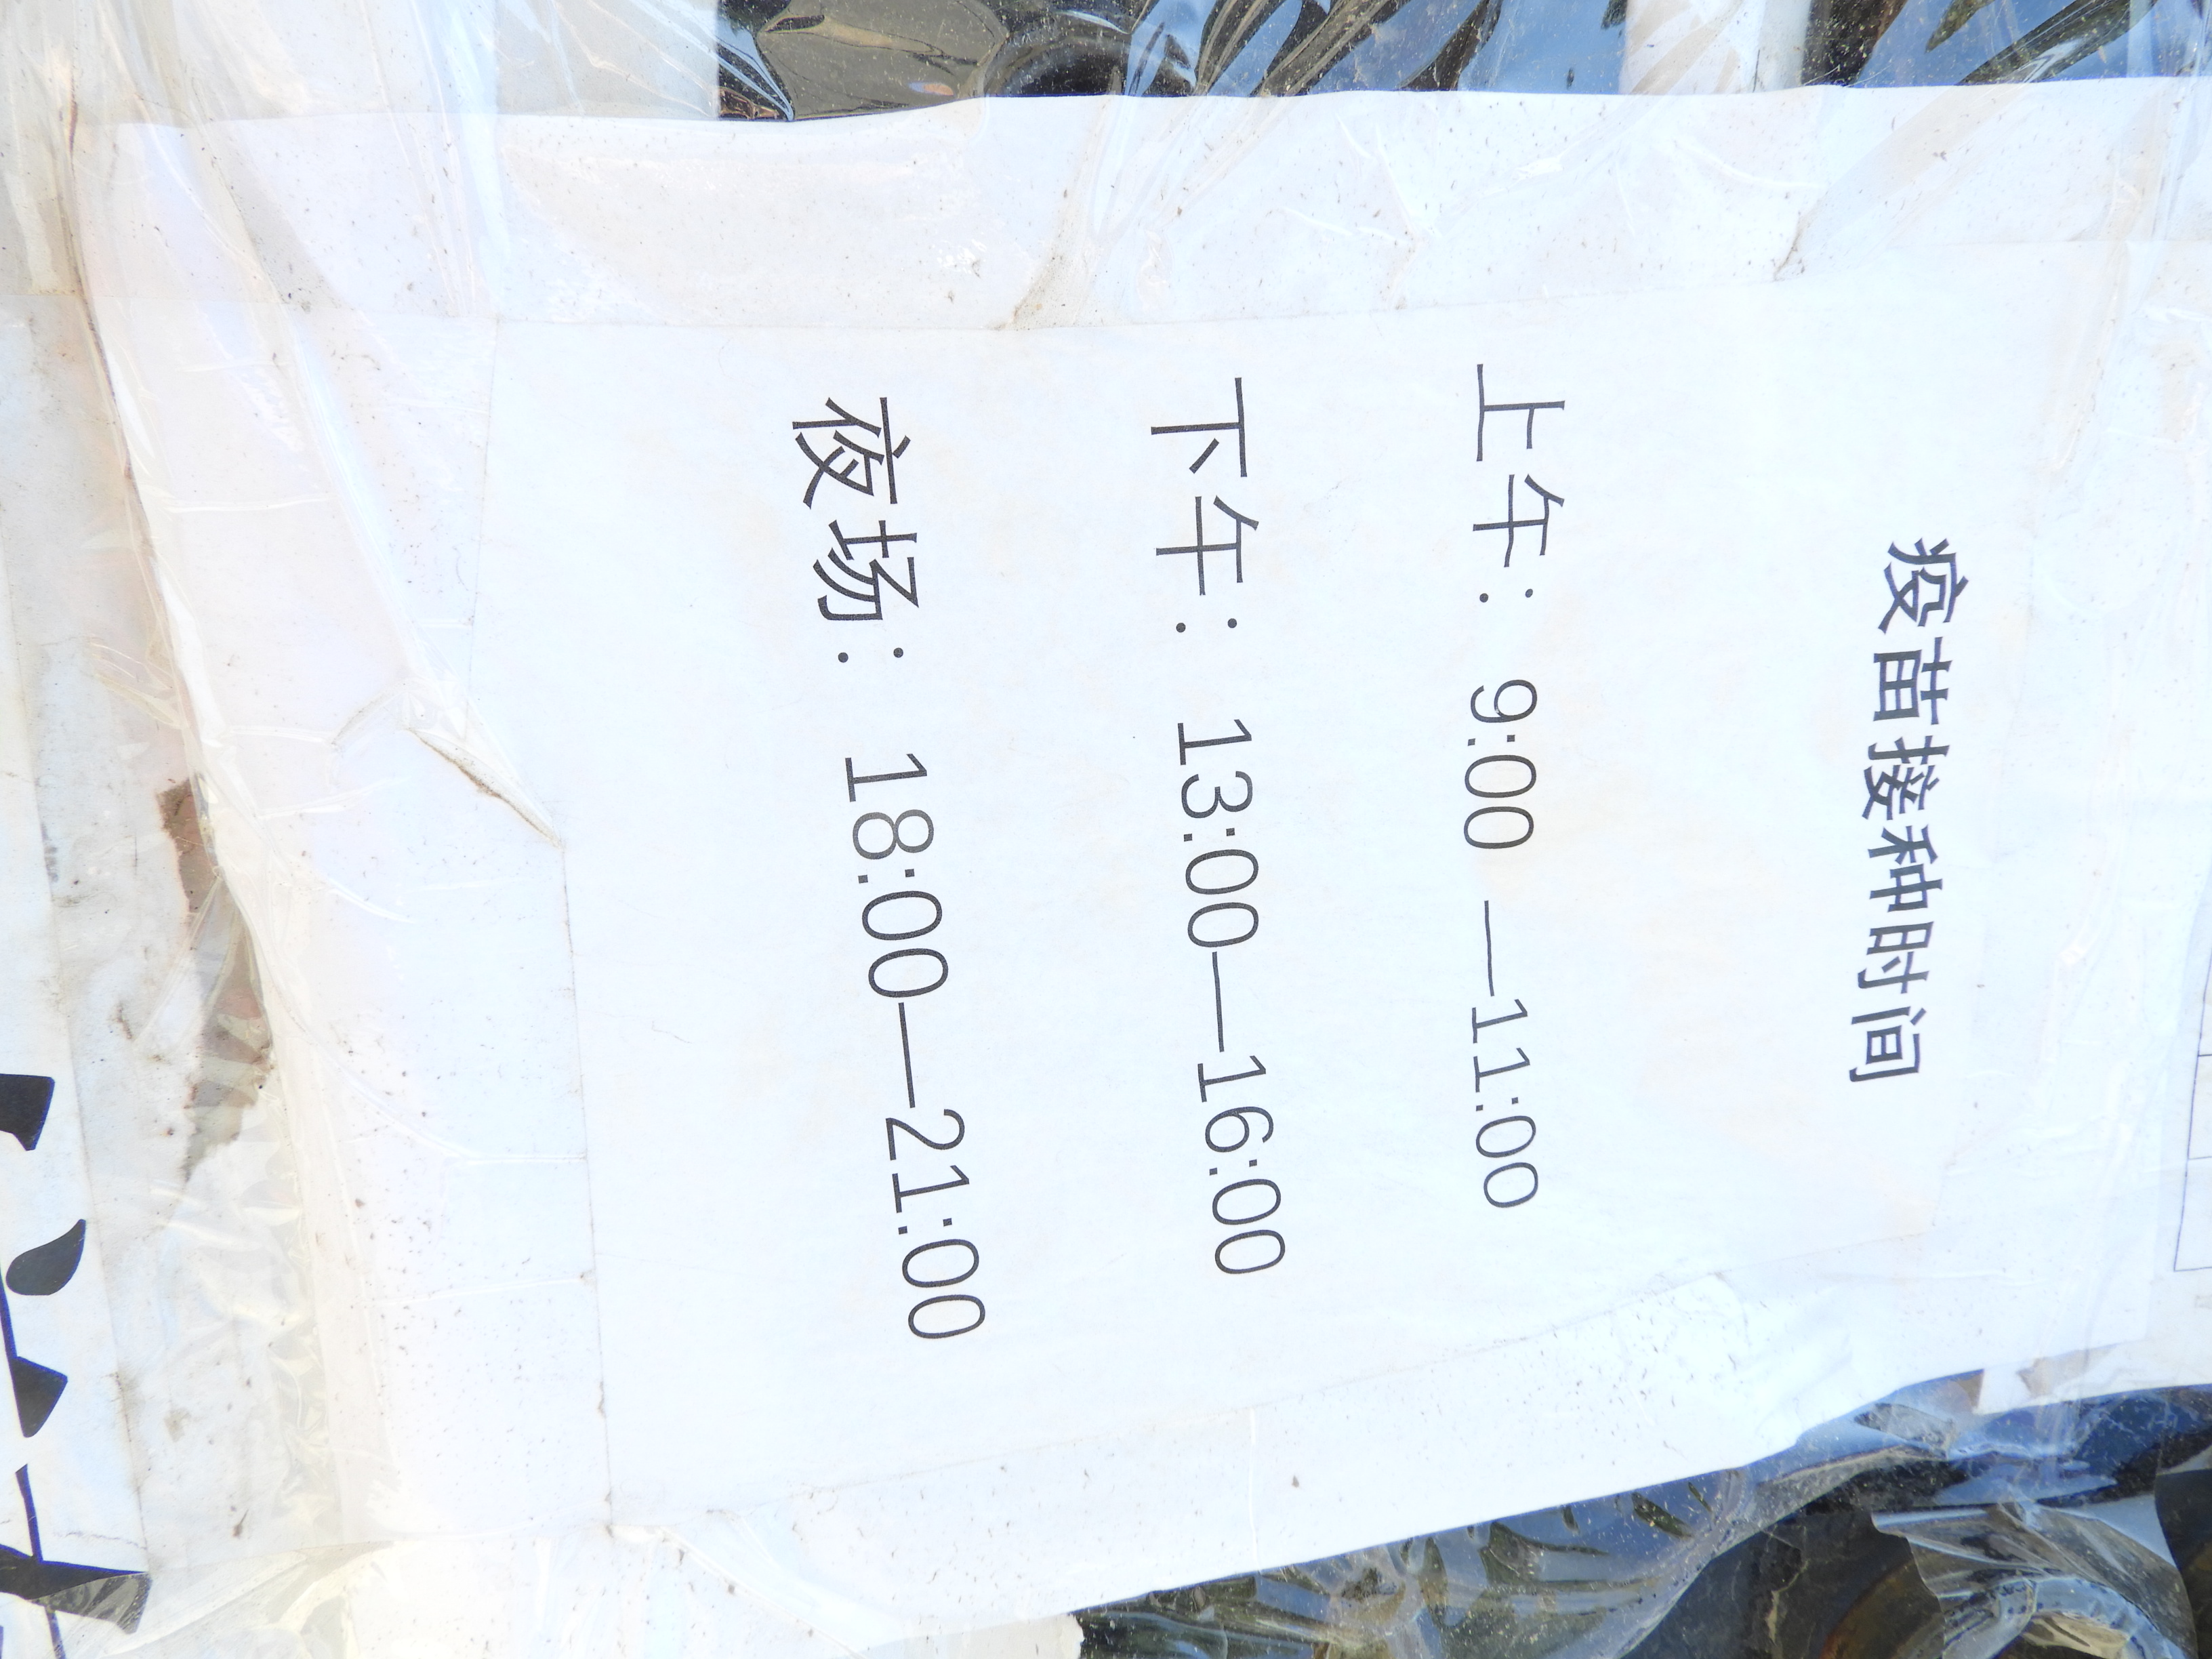 疫苗接种时间
上午：9:00 —11:00
下午：13:00—16:00
夜场：18:00—21:00